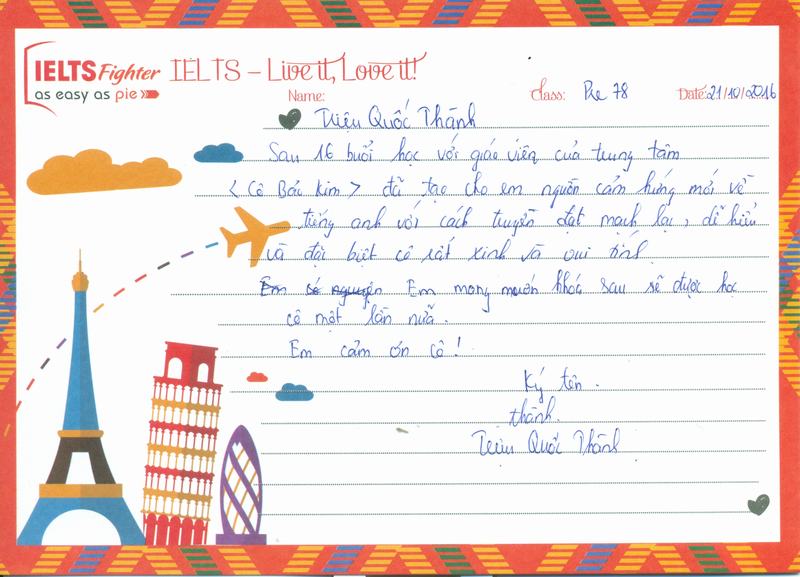 IELTS Fighter
as easy as pie
IELTS – Live it, Love it!
Name:
Class: Pre 78
Date: 21/10/2016
Triệu Quốc Thành
Sau 16 buổi học với giáo viên của trung tâm
< Cô Bảo Kim > đã tạo cho em nguồn cảm hứng mới về
tiếng anh với cách truyền đạt mạch lạc, dễ hiểu
và đặc biệt cô rất xinh và vui tính.
Em mong muốn khóa sau sẽ được học
cô một lần nữa.
Em cảm ơn cô !
Ký tên.
Thành.
Triệu Quốc Thành